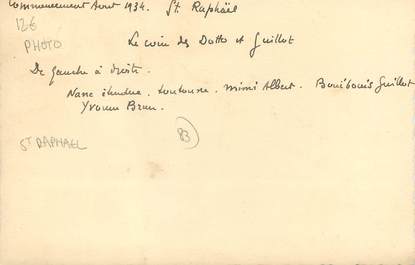 Commencement Aout 1934. St. Raphaël
12€
PHOTO
Le coin des Dotto et Guillot
De gauche à droite.
Nane étendue. Toutoune. Mimi Albert. Guillot
Yvonne Brun.
83
ST RAPHAEL